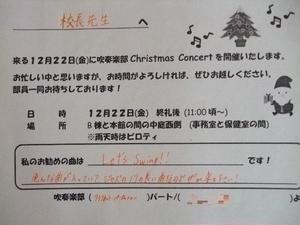 校長先生 へ
来る12月22日(金)に吹奏楽部Christmas Concertを開催いたします。
お忙しい中と思いますが、お時間がよろしければ、ぜひお越しください。
部員一同お待ちしております!
日　時　12月22日(金) 終礼後 (11:00頃~)
場　所　B棟と本館の間の中庭西側 (事務室と保健室の間)
※雨天時はピロティ
私のお勧めの曲は Let's Swing!! です!
吹奏楽部 ( )パート/( )より